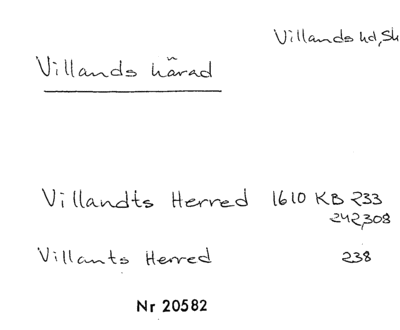 Villands hd, Sk
Villands härad
Villandts Herred 1610 KB 233
242,308
Villants Herred 238
Nr 20582